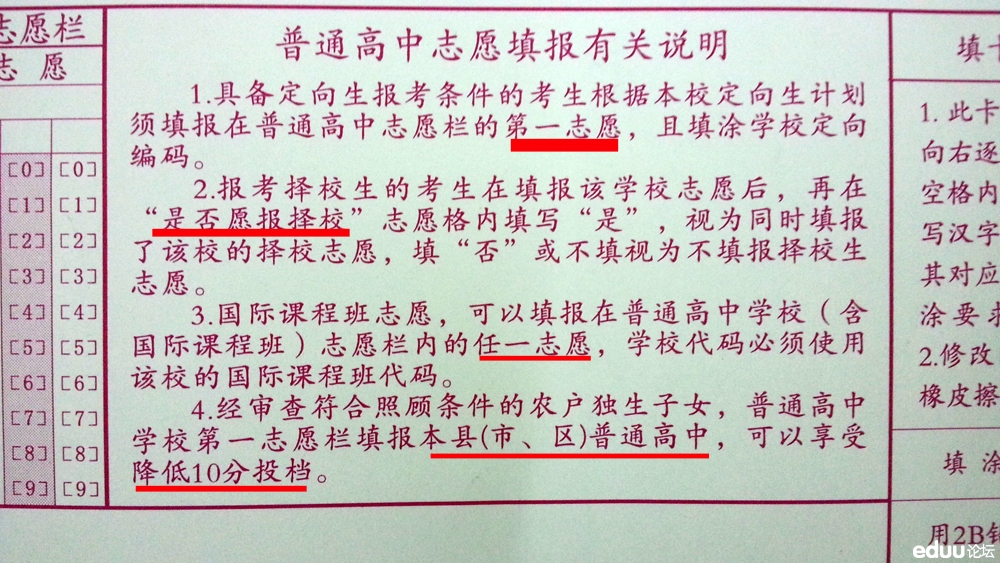 志愿栏
志 愿
[0] [0]
[1] [1]
[2] [2]
[3] [3]
[4] [4]
[5] [5]
[6] [6]
[7] [7]
[8] [8]
[9] [9]
普通高中志愿填报有关说明
1.具备定向生报考条件的考生根据本校定向生计划
须填报在普通高中志愿栏的第一志愿，且填涂学校定向
编码。
2.报考择校生的考生在填报该学校志愿后，再在
“是否愿报择校”志愿格内填写“是”，视为同时填报
了该校的择校志愿，填“否”或不填视为不填报择校生
志愿。
3.国际课程班志愿，可以填报在普通高中学校（含
国际课程班）志愿栏内的任一志愿，学校代码必须使用
该校的国际课程班代码。
4.经审查符合照顾条件的农户独生子女，普通高中
学校第一志愿栏填报本县(市、区)普通高中，可以享受
降低10分投档。
填
1. 此卡
向右逐
空格内
写汉字
其对应
涂要求
2.修改
橡皮擦
填 涂
用2B铅
eduu论坛